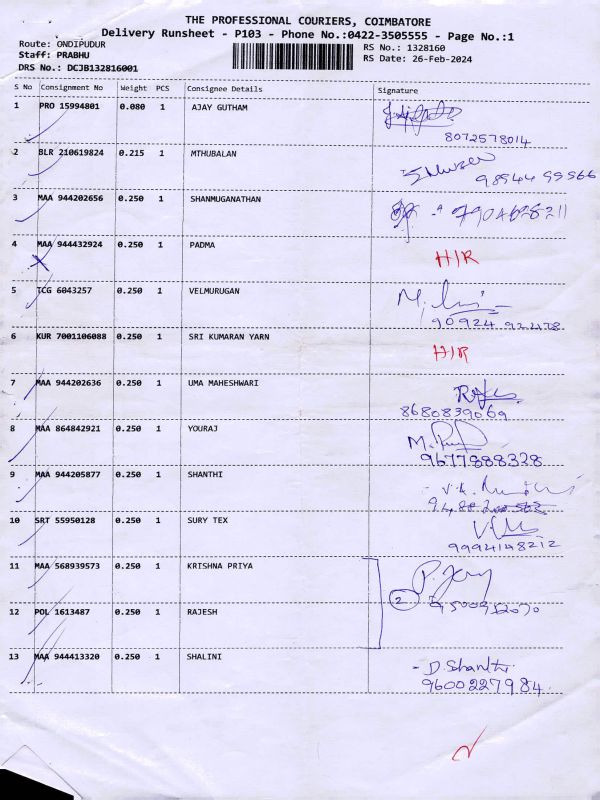 THE PROFESSIONAL COURIERS, COIMBATORE
Delivery Runsheet - P103 - Phone No.:0422-3505555 - Page No.:1
Route: ONDIPUDUR RS No.: 1328160
Staff: PRABHU RS Date: 26-Feb-2024
DRS No.: DCJB132816001
S No Consignment No Weight PCS Consignee Details Signature
1 PRO 15994801 0.080 1 AJAY GUTHAM
8072578014
2 BLR 210619824 0.215 1 MTHUBALAN
98944 99566
3 MAA 944202656 0.250 1 SHANMUGANATHAN
4 MAA 944432924 0.250 1 PADMA H/R
5 TCG 6043257 0.250 1 VELMURUGAN
90924 922178
6 KUR 7001106088 0.250 1 SRI KUMARAN YARN H/R
7 MAA 944202636 0.250 1 UMA MAHESHWARI
8680839069
8 MAA 864842921 0.250 1 YOURAJ
9677888328
9 MAA 944205877 0.250 1 SHANTHI
10 SRT 55950128 0.250 1 SURY TEX
9994148212
11 MAA 568939573 0.250 1 KRISHNA PRIYA
2
12 POL 1613487 0.250 1 RAJESH
13 MAA 944413320 0.250 1 SHALINI
- D. Shanthi
9600227984.